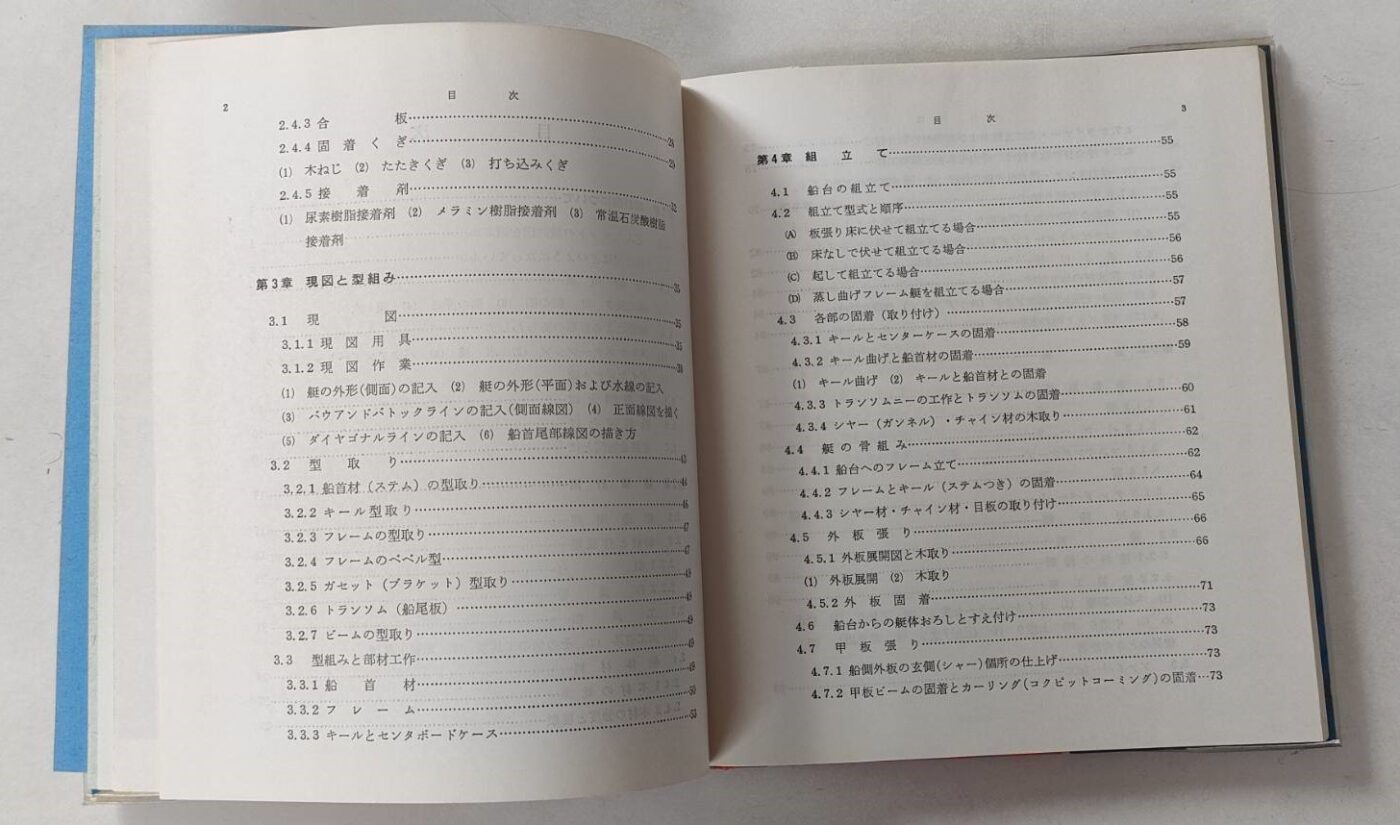 2
目 次
2.4.3 合 板……28
2.4.4 固着くぎ……29
(1) 木ねじ (2) たたきくぎ (3) 打ち込みくぎ
2.4.5 接 着 剤……32
(1) 尿素樹脂接着剤 (2) メラミン樹脂接着剤 (3) 常温石炭酸樹脂
接着剤
第3章 現図と型組み……35
3.1 現 図……35
3.1.1 現図用具……35
3.1.2 現図作業……38
(1) 艇の外形(側面)の記入 (2) 艇の外形(平面)および水線の記入
(3) バウアンドバトックラインの記入(側面線図) (4) 正面線図を描く
(5) ダイヤゴナルラインの記入 (6) 船首尾部線図の描き方
3.2 型 取 り……43
3.2.1 船首材(ステム)の型取り……44
3.2.2 キール型取り……46
3.2.3 フレームの型取り……47
3.2.4 フレームのベベル型……47
3.2.5 ガセット(ブラケット)型取り……48
3.2.6 トランソム(船尾板)……48
3.2.7 ビームの型取り……48
3.3 型組みと部材工作……49
3.3.1 船 首 材……49
3.3.2 フレーム……50
3.3.3 キールとセンタボードケース……53
目 次
3
第4章 組 立 て……55
4.1 船台の組立て……55
4.2 組立て型式と順序……55
(A) 板張り床に伏せて組立てる場合……55
(B) 床なしで伏せて組立てる場合……56
(C) 起して組立てる場合……56
(D) 蒸し曲げフレーム艇を組立てる場合……57
4.3 各部の固着(取り付け)……57
4.3.1 キールとセンターケースの固着……58
4.3.2 キール曲げと船首材の固着……59
(1) キール曲げ (2) キールと船首材との固着
4.3.3 トランソムニーの工作とトランソムの固着……60
4.3.4 シャー(ガンネル)・チャイン材の木取り……61
4.4 艇の骨組み……62
4.4.1 船台へのフレーム立て……62
4.4.2 フレームとキール(ステムつき)の固着……64
4.4.3 シャー材・チャイン材・目板の取り付け……65
4.5 外板張り……66
4.5.1 外板展開図と木取り……66
(1) 外板展開 (2) 木取り
4.5.2 外板固着……71
4.6 船台からの艇体おろしとすえ付け……73
4.7 甲板張り……73
4.7.1 船側外板の玄側(シャー)個所の仕上げ……73
4.7.2 甲板ビームの固着とカーリング(コクピットコーミング)の固着…73